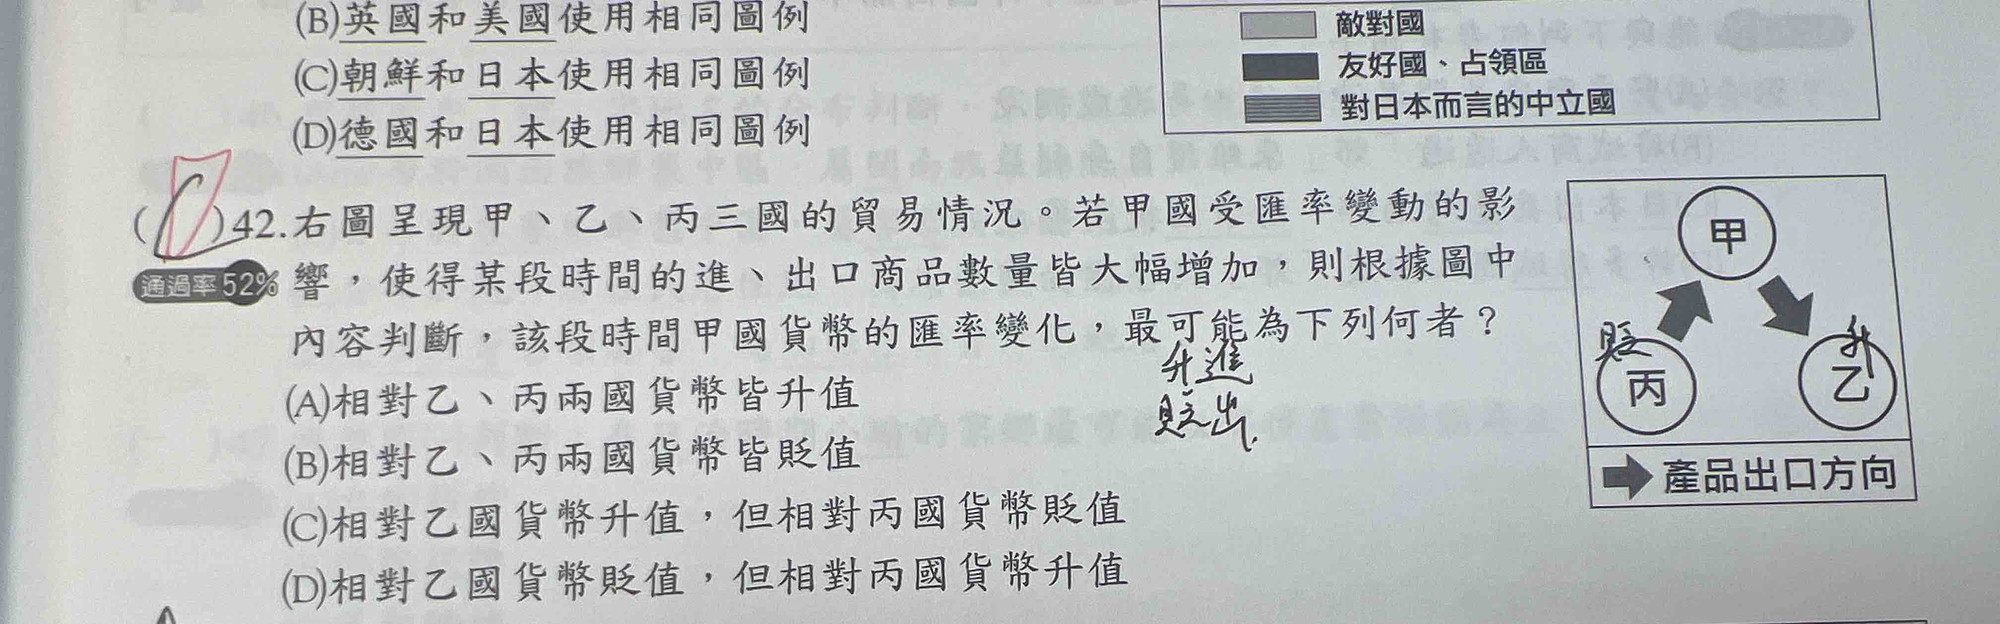 (B)英國和美國使用相同圖例
(C)朝鮮和日本使用相同圖例
(D)德國和日本使用相同圖例
敵對國
友好國、占領區
對日本而言的中立國
(C)42.右圖呈現甲、乙、丙三國的貿易情況。若甲國受匯率變動的影
通過率52%
響，使得某段時間的進、出口商品數量皆大幅增加，則根據圖中
內容判斷，該段時間甲國貨幣的匯率變化，最可能為下列何者？
升進
貶出
(A)相對乙、丙兩國貨幣皆升值
(B)相對乙、丙兩國貨幣皆貶值
(C)相對乙國貨幣升值，但相對丙國貨幣貶值
(D)相對乙國貨幣貶值，但相對丙國貨幣升值
甲
貶
升
丙
乙
產品出口方向